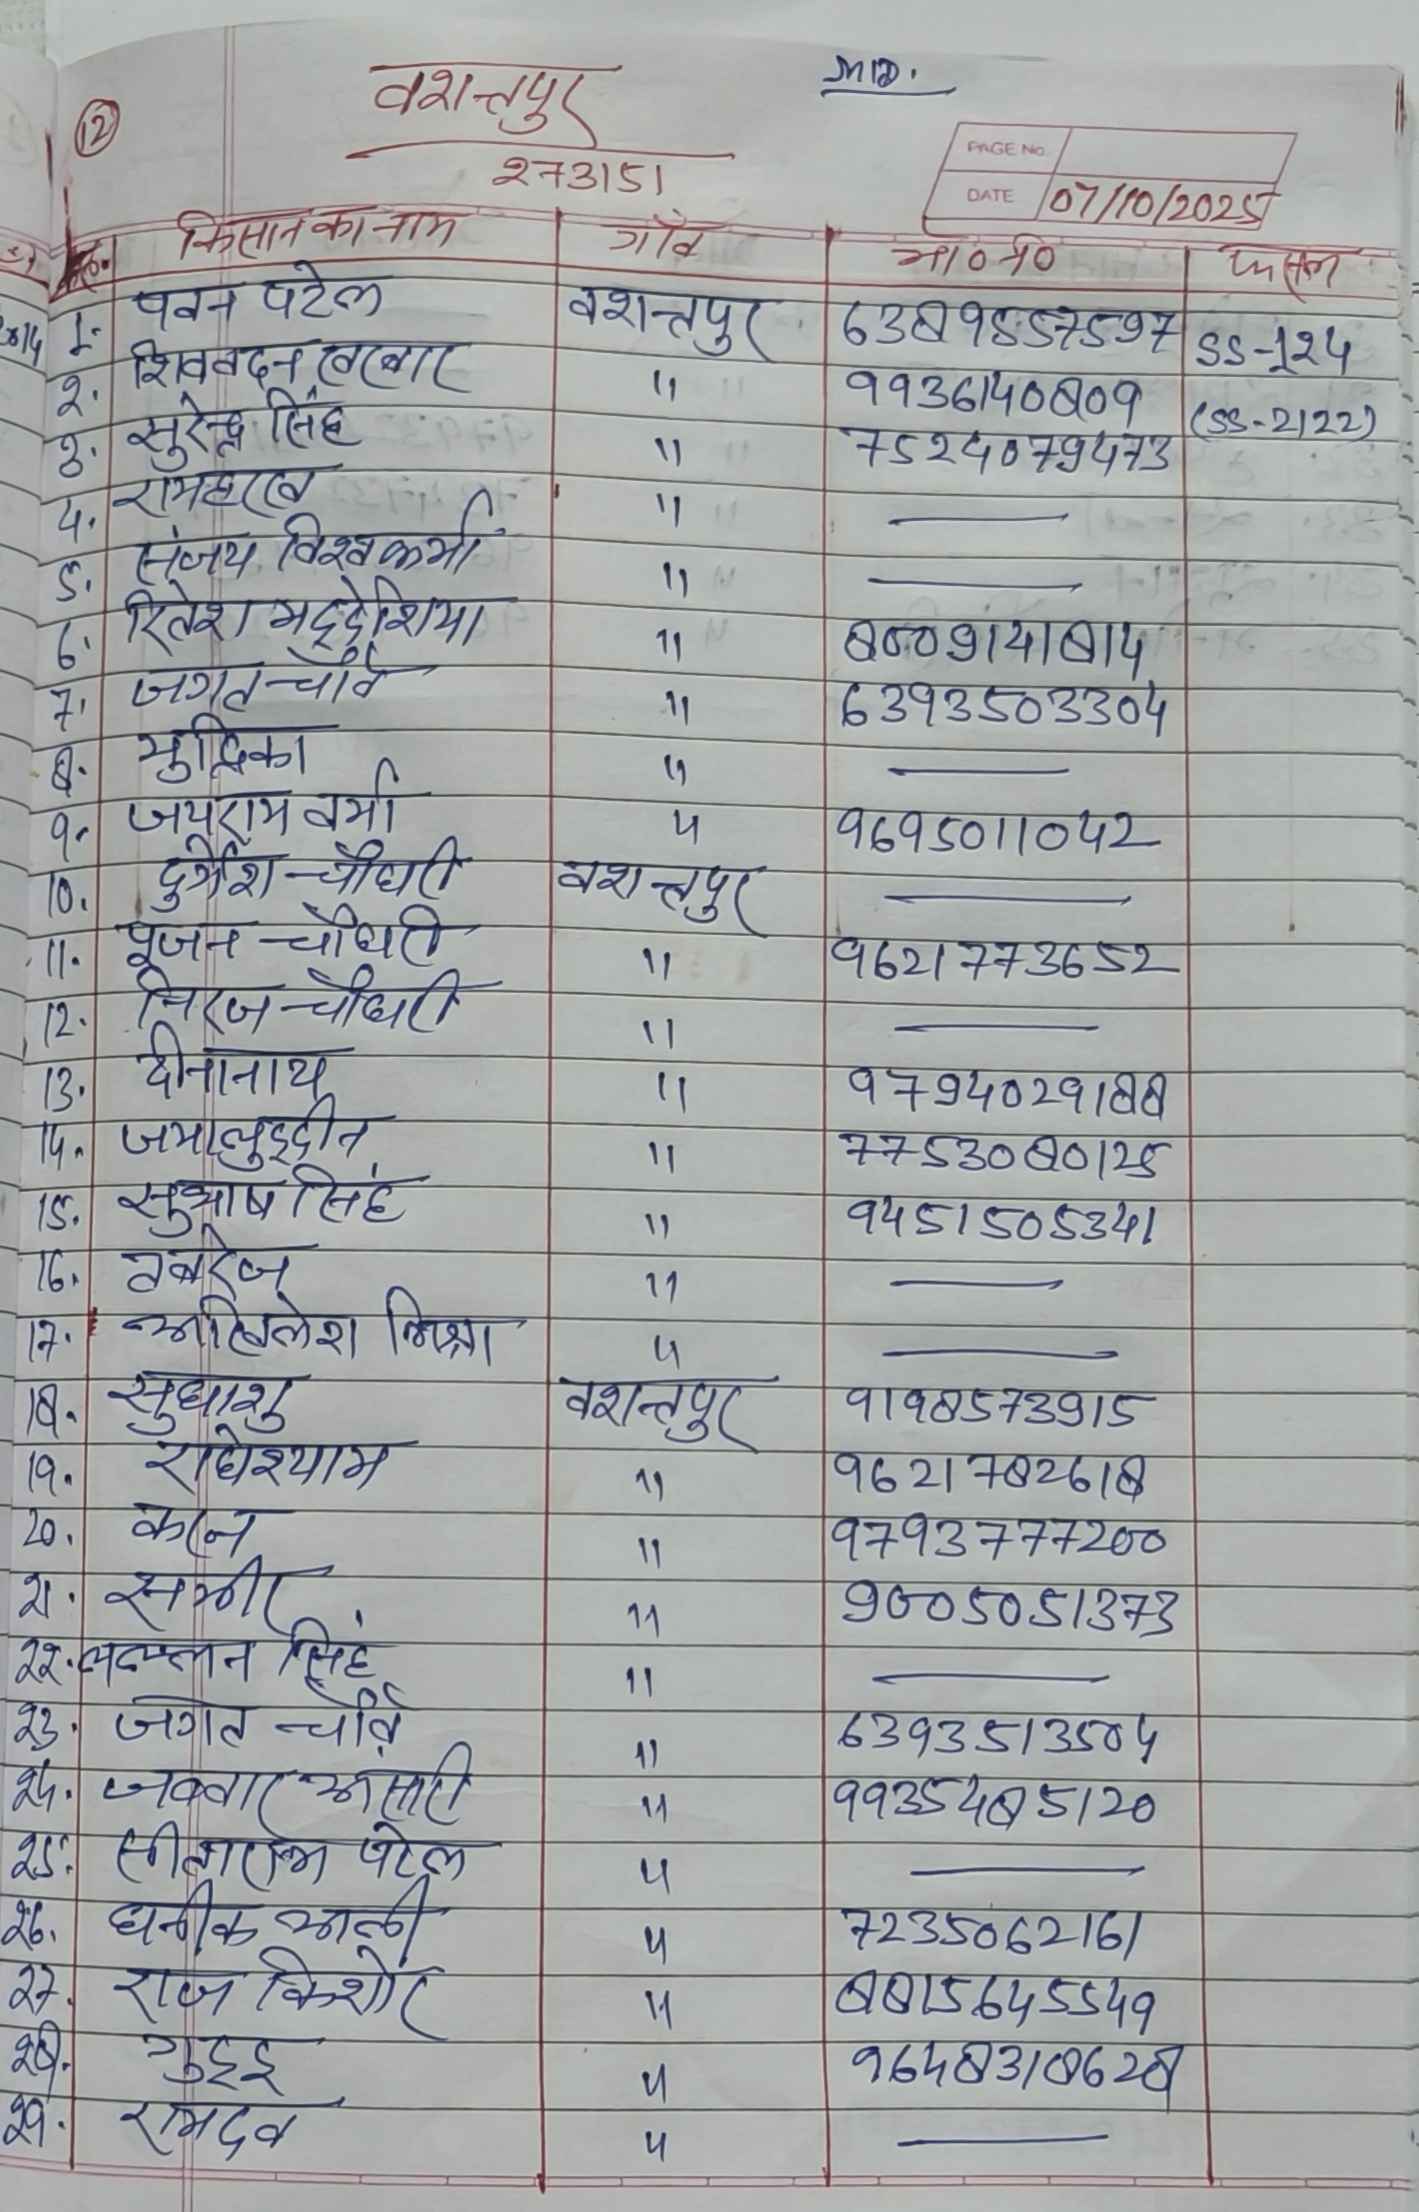 वशन्तपुर
MD.
12
273151
PAGE No.
DATE 07/10/2025
किसान का नाम गाँव मो0 नं0 फसल
1. पवन पटेल वशन्तपुर 6389557597 SS-124
2. शिववदन खरवार " 9936140809 (SS-2122)
3. सुरेन्द्र सिंह " 7524079473
4. रामहरख " —
5. संजय विश्वकर्मा " —
6. रितेश मद्देशिया " 8009141814
7. जगत चौवे " 6393503304
8. मुद्रिका " —
9. जयराम वर्मा " 9695011042
10. दुर्गेश चौधरी वशन्तपुर —
11. पूजन चौधरी " 9621773652
12. निरज चौधरी " —
13. दीनानाथ " 9794029188
14. जमालुद्दीन " 7753080125
15. सुभाष सिंह " 9451505341
16. तबरेज " —
17. अखिलेश मिश्रा " —
18. सुधांशु वशन्तपुर 9198573915
19. राधेश्याम " 9621782618
20. करन " 9793777200
21. समीर " 9005051373
22. लल्लन सिंह " —
23. जगत चौवे " 6393513504
24. जब्बार अंसारी " 9935485120
25. सीताराम पटेल " —
26. धनीक अली " 7235062161
27. राज किशोर " 8815645549
28. गुड्डु " 9648318628
29. रामदेव " —